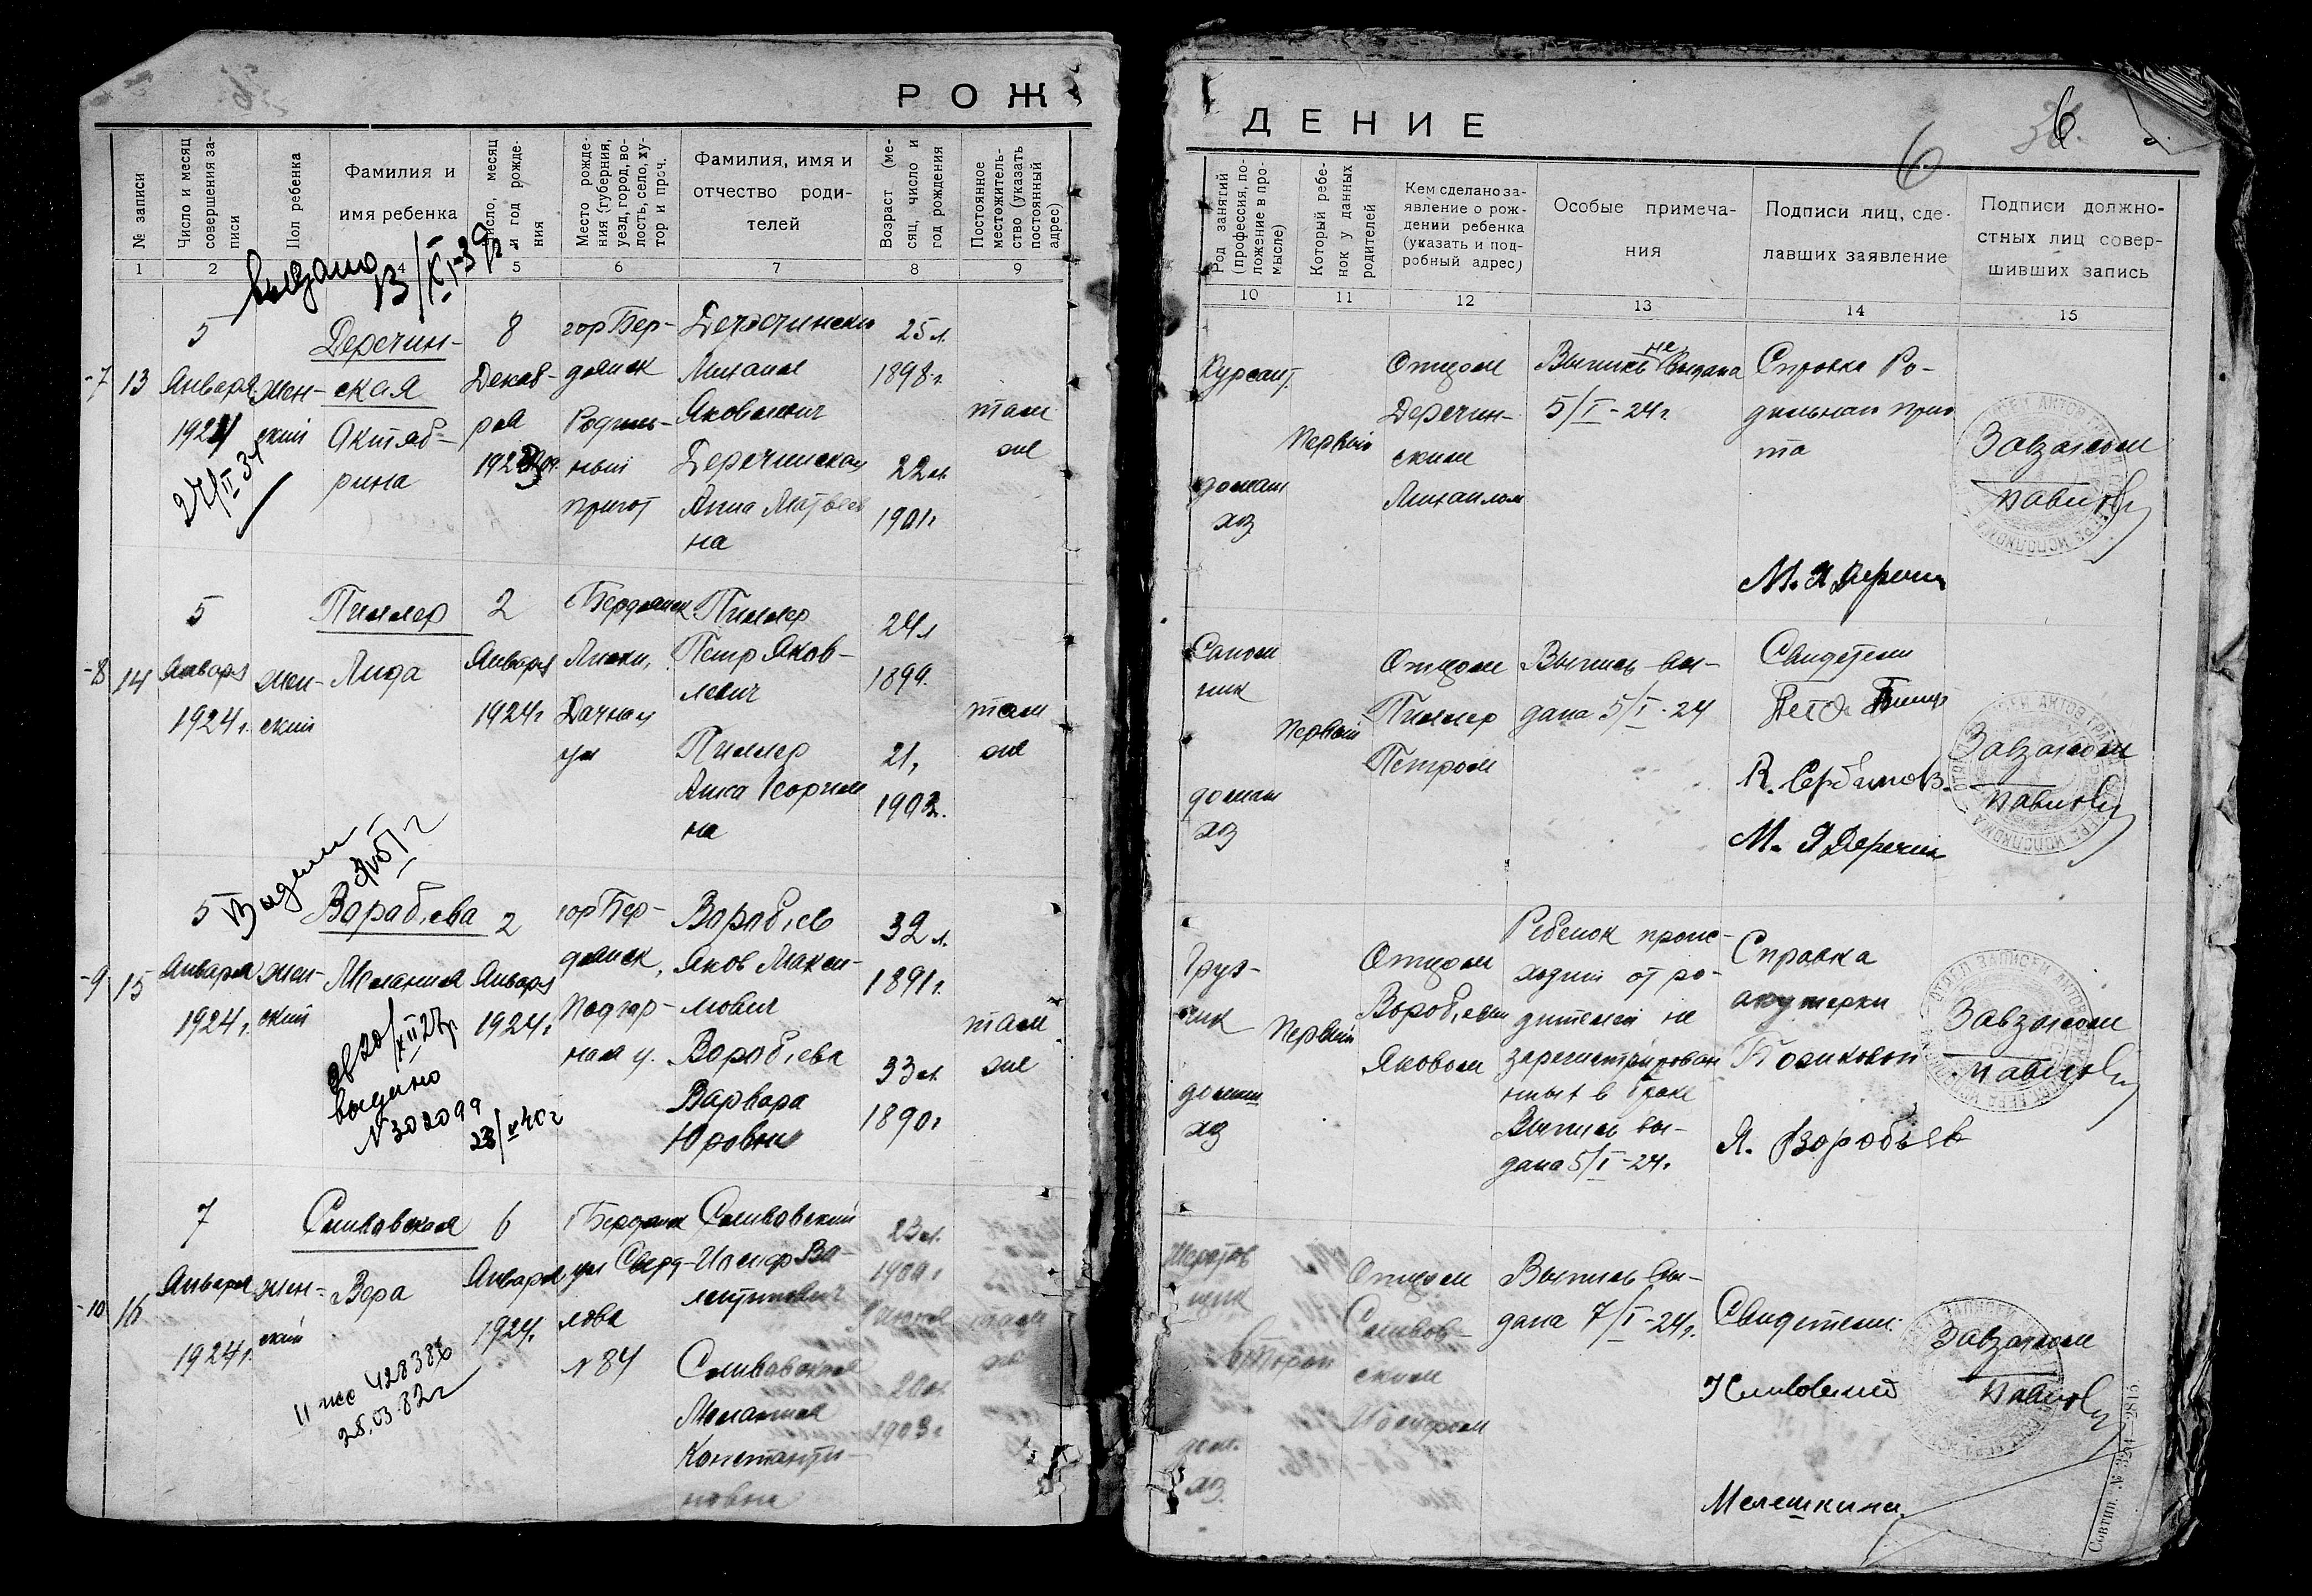 РОЖ
ДЕНИЕ
6
6
№ записи
Число и месяц совершения записи
Пол ребенка
Фамилия и
имя ребенка
Число, месяц и год рождения
Место рождения (губерния, уезд, город, волость, село, хутор и проч.
Фамилия, имя и
отчество роди-
телей
Возраст (месяц, число и год рождения
Постоянное местожительство (указать постоянный адрес)
1 2 4 5 6 7 8 9
Род занятий (профессия, положение в промысле)
Который ребенок у данных родителей
Кем сделано за-
явление о рож-
дении ребенка
(указать и под-
робный адрес)
Особые примеча-
ния
Подписи лиц, сде-
лавших заявление
Подписи должно-
стных лиц совер-
шивших запись
10 11 12 13 14 15
выдано
-7
13
5
Января
1924
жен-
ский
Деречин-
ская
Октяб-
рина
8
Декаб-
ря
гор Бер-
дянск
Родиль-
ный
приют
Деречински
Михаил
Яковлевич
Деречинская
Анна Матвеев
на
25 л.
1898 г.
22 л.
1901 г
там
же
Курсант
домаш
хоз
Первый
Отцом
Деречин-
ским
Михаилом
Выпись не выдана
5/I-24 г
Справка Ро-
дильнаго прию
та
М. Я Деречин
Завзагсом
-8
14
5
Января
1924 г.
жен-
ский
Пиллер
Лида
2
Января
1924 г
г Бердянск
Лиски,
Дачная
ул
Пиллер
Петр Яков-
левич
Пиллер
Анна Георгиев
на
24 л
1899.
21,
1902.
там
же
Сапож
ник
домаш
хоз
Первый
Отцом
Пиллер
Петром
Выпись вы-
дана 5/I-24
Свидетели
М. Я Деречин
Завзагсом
-9
15
5
Января
1924 г.
жен-
ский
Вораб,ева
Мелания
выдано
N 302099
2
Января
1924 г.
гор Бер-
дянск,
Подгор-
ная у.
Вороб,ев
Яков Макси-
мович
Вороб,ева
Варвара
Юровна
32 л.
1891 г.
33 л.
1890 г
там
же
Груз-
чик
домаш
хоз
Первый
Отцом
Вороб,евым
Яковом
Ребенок проис-
ходит от ро-
дителей не
зарегистрирован
ных в браке
Выпись вы-
дана 5/I-24 г.
Справка
акушерки
Поликовой
Я. Воробьев
Завзагсом
-10
16
7
Января
1924 г.
жен-
ский
Сливовская
Вера
28.03.82 г
6
Января
1924.
г Бердянск
ул Сверд-
лова
N 84
Сливовский
Иосиф Ва-
лентинович
Сливовская
Мелания
Константи-
новна
23 л.
20 л.
1903 г
там
же
дом.
хоз.
Второй
Отцом
Сливов-
ским
Иосифом
Выпись вы-
дана 7/I-24 г.
Свидетели:
Мелешкина.
Завзагсом